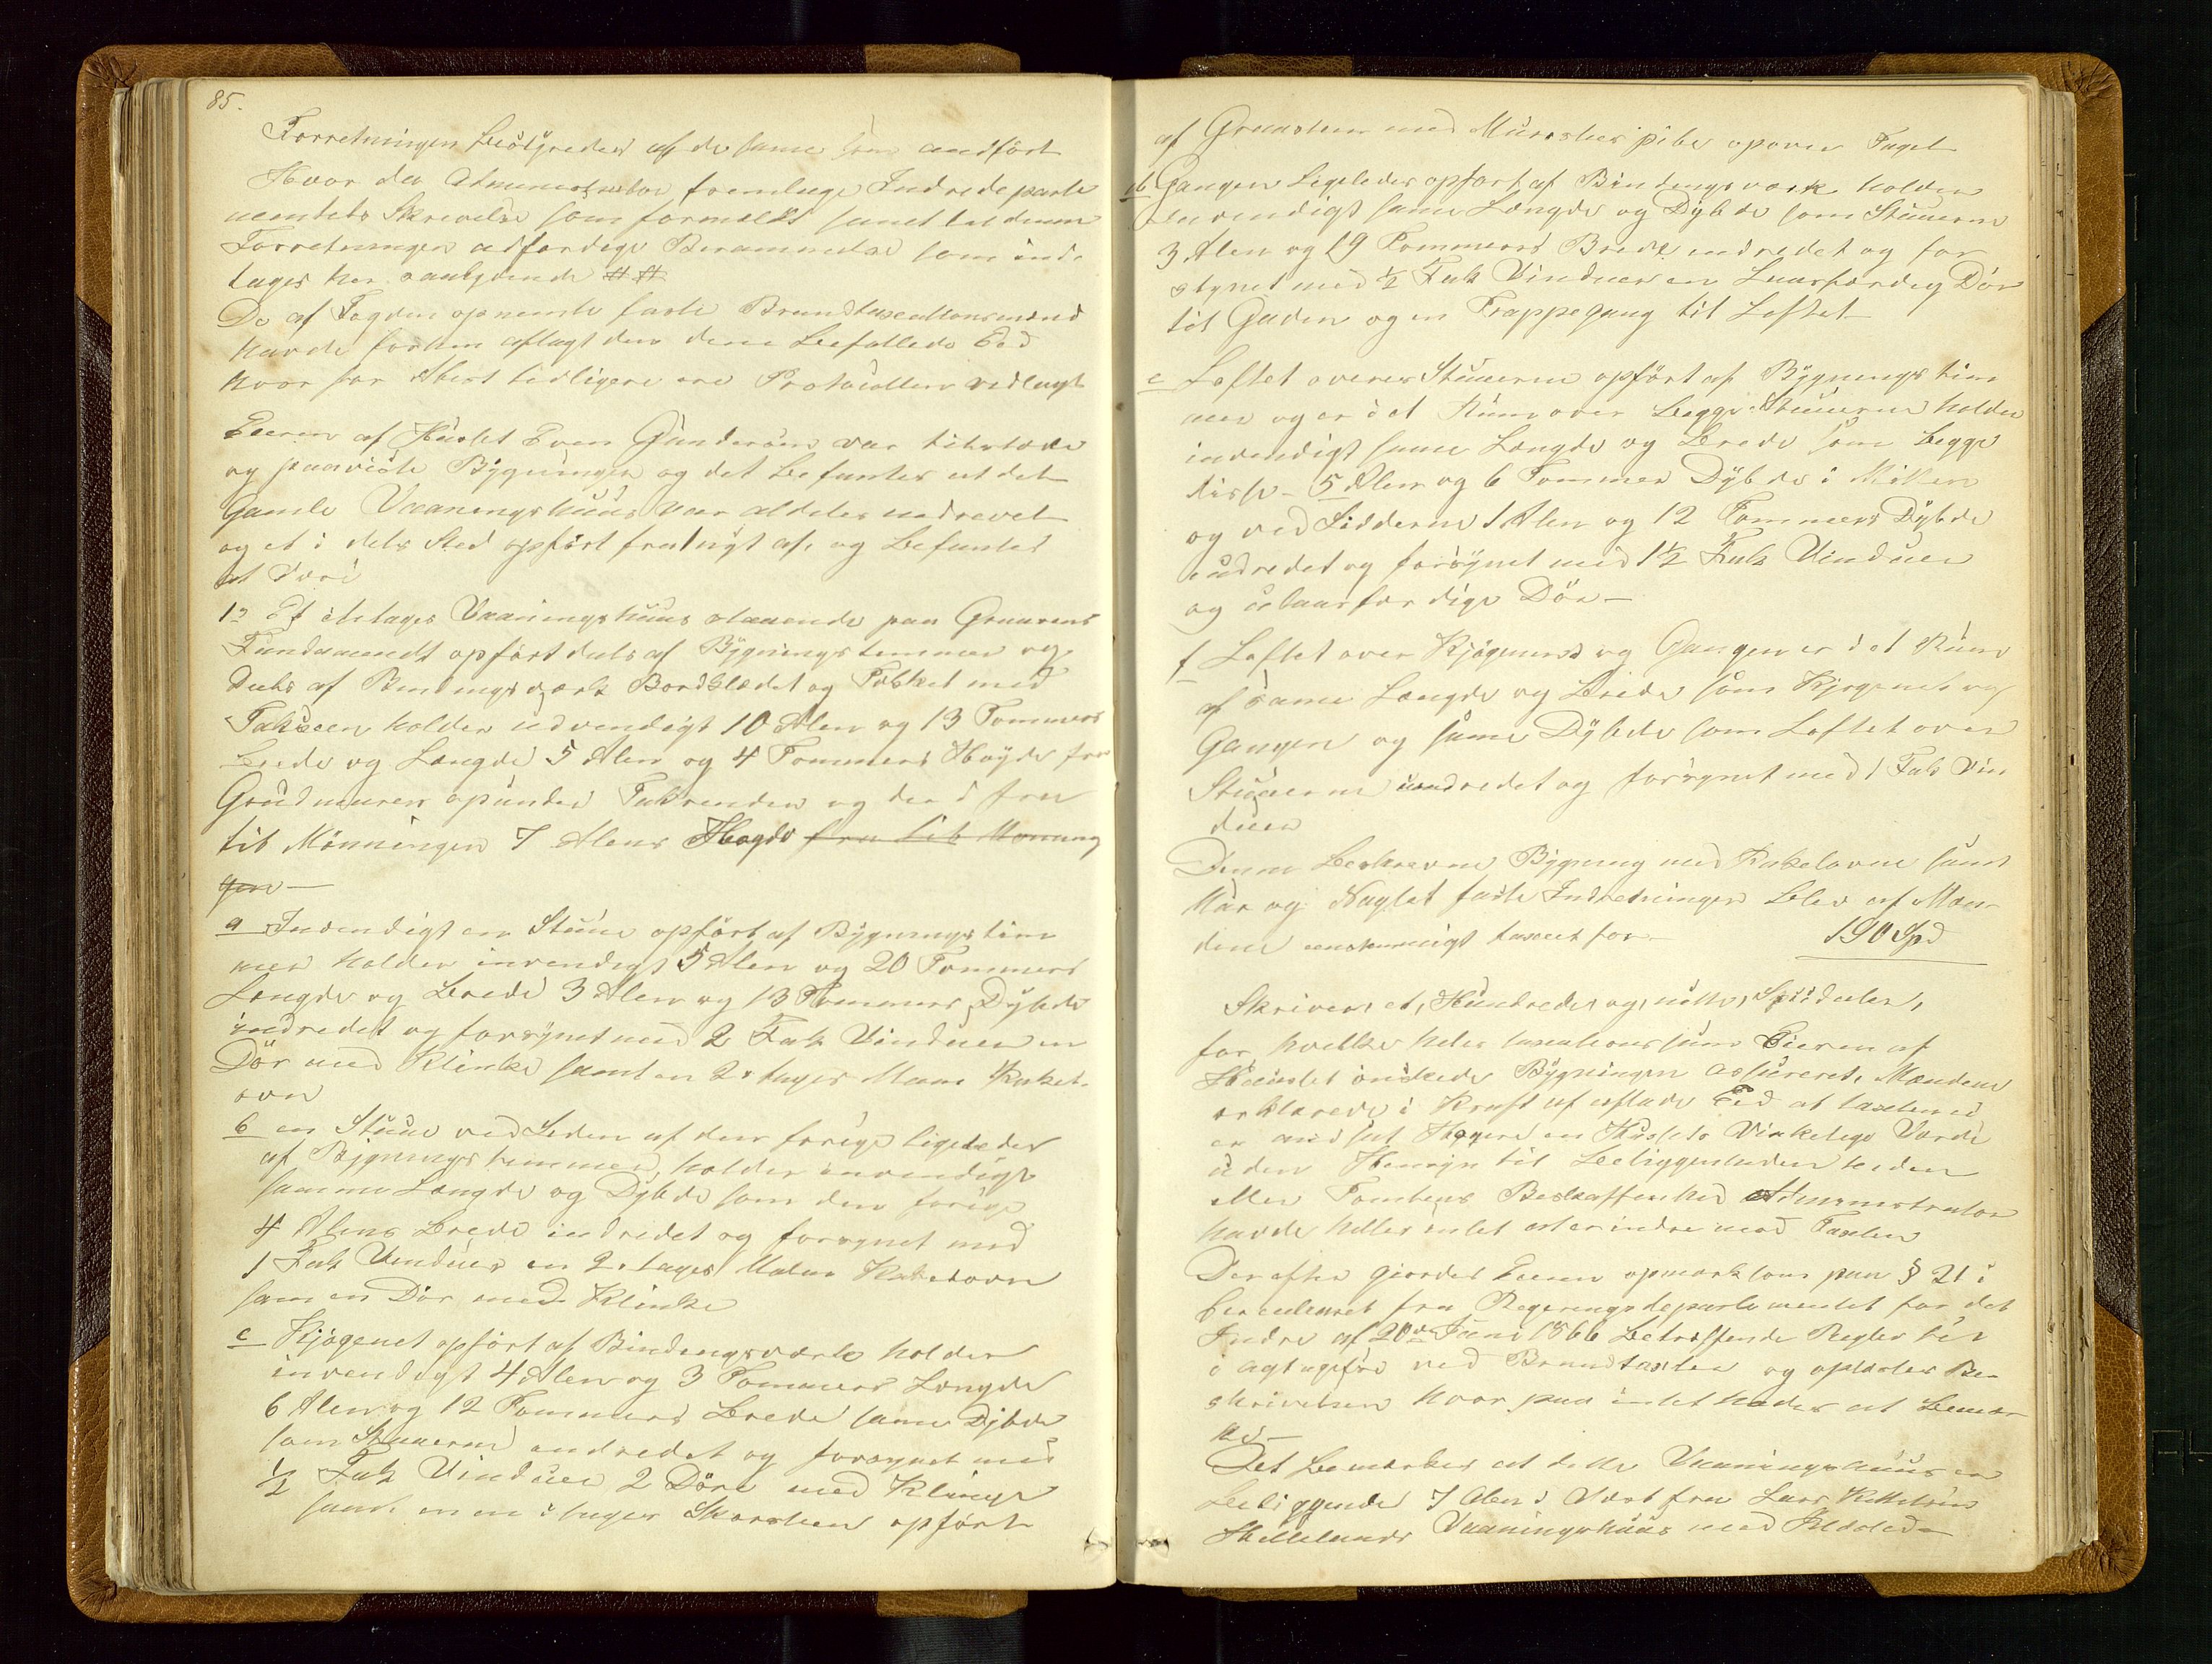 85.
Forretningen besørgedes af de samme som anført
Hvor da Administrator fremlagde Indredeparte
mentets Skrivelse som formeldt samt til denne
Forretningen udfærdige Berammelse som ind-
tages her saalydende ##
De af Fogden opnevnte faste Brandtaxationsmænd
havde forhen aflagt den dem befallede Eed
hvor for Abest tidligere ere Protocollen vedlagt
Eieren af Huset Even Gundersen var tilstæde
og paaviste Bygningen og det befantes at det
Gamle Vaaningshuus var aldeles nedrevet
og et i dets Sted opført fra nyt af, og befantes
at være
1o Et etages Vaaningshuus staaende paa Graasteens
Fundament opført dels af Bygningstømmer og
Dels af Bindingsværk Bordklædet og Tækket med
Taksteen holder udvendigt 10 Alen og 13 Tommers
brede og Længde 5 Alen og 4 Tommers Høyde fra
Grudmuren opunder Takrenden og der i fra
til Mønningen 7 Alens Høyde fra til Mønning
gen —
a Indvendigt en Stue opført af Bygningstøm
mer holder invendigt 5 Alen og 20 Tommers
Længde og brede 3 Alen og 13 Tommers Dybde
indredet og forsynet med 2 Fak Vinduer en
Dør med Klinke samt en 2 etages Kakel-
ovn
b en Stue ved Siden af den forige ligeledes
af Bygningstømmer, holder invendigt
samme Længde og Dybde som den forige
4 Alens brede indredet og forsynet med
1 Fak Vinduer en 2 etages Kakelovn
sam en Dør med Klinke
c Kjøgenet opført af Bindingsværk holder
invendigt 4 Alen og 3 Tommers Længde
6 Alen og 12 Tommers brede same Dybde
som Stuerne indredet og forsynet med
1/2 Fak Vinduer 2 Døre med Klinge
samt en en etages Skorsteen opført
af Graasteen med Muurstens pibe opover Taget
d Gangen Ligeledes opført af Bindingsværk holder
invendigt same Længde og Dybde som Stuerne
3 Alen og 19 Tommers Brede indredet og for
synet med 1/2 Fak Vinduer en Laasfærdig Dør
til Gaden og en Trappegang til Loftet
e Loftet over Stuerne opført af Bygningstøm
mer og er i et Rum over begge Stuerne holder
invendigt same Længde og brede som begge
disse — 5 Alen og 6 Tommer Dybde i Mitten
og ved Sidderne 1 Alen og 12 Tommers Dybde
indredet og forsynet med 1 1/2 Fak Vinduer
og laasfærdige Dør —
f Loftet over Kjøgenet og Gangen er i et Rum
af same Længde og brede som Kjøgenet og
Gangen og same Dybde som Loftet over
Stuerne indredet og forsynet med 1 Fak Vin
duer
Denne beskrevne Bygning med Kakelovne samt
Mur og Naglet faste Indretninger blev af Mæn
dene eenstemmigt taxeret for — 190 Spd
Skriver, et, Hundrede, og, nitti, Spidaler,
for hvilke hele taxationssum Eieren af
Huuset ønskede Bygningen assureret, Mændene
erklærede i Kraft af aflade Eed at taxten ei
er andsat Høyere en Husets Virkelige Værdi
uden Hensyn til beliggenheden
eller Tomtens Beskaffenhed Administrator
havde heller intet at erindre mod Taxten
Derefter giordes Eieren opmærksom paa § 21 i
Circulæret fra Regeringsdepartementet for det
Indre af 20de Juni 1866 betræffende Regler til
i agttagelse ved Brandtaxter og oplæstes Be-
skrivelsen hvor paa intet hades at bemær
ke —
Det bemærkes at dette Vaaningshuus er
beliggende 7 Alen i Vest fra Lars Kettelsen
Hellelands Vaaningshuus med Ildsted —